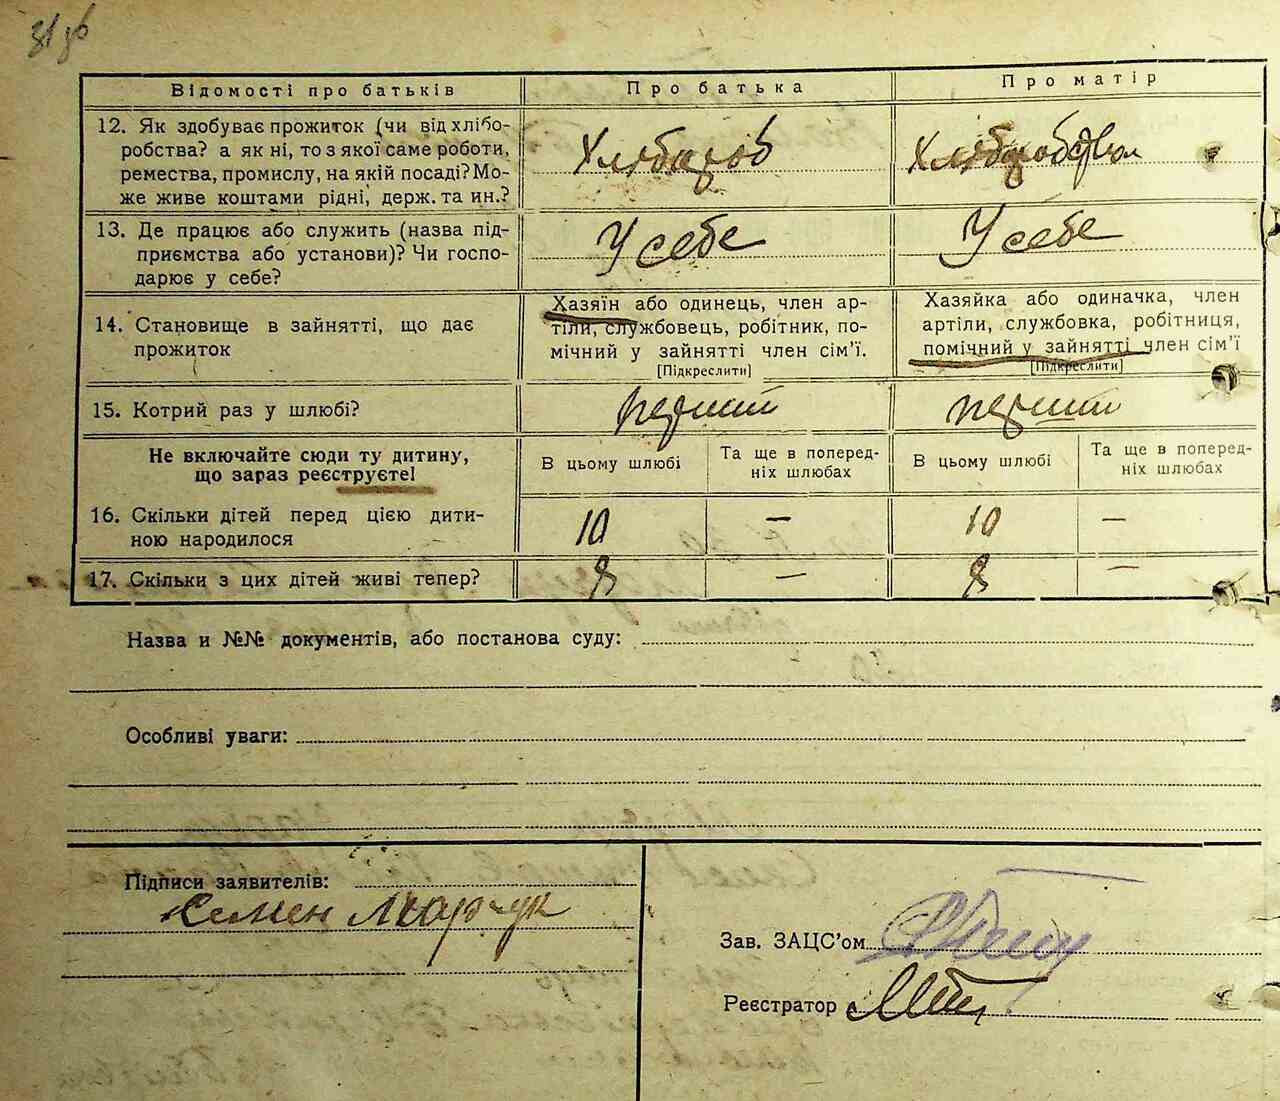 31 зв
Відомості про батьків Про батька Про матір
12. Як здобуває прожиток (чи від хлібо-
робства? а як ні, то з якої саме роботи,
ремества, промислу, на якій посаді? Мо-
же живе коштами рідні, держ. та ин.?
Хлібороб Хліборобством
13. Де працює або служить (назва під-
приємства або установи)? Чи госпо-
дарює у себе?
У себе У себе
14. Становище в зайнятті, що дає
прожиток
Хазяїн або одинець, член ар-
тіли, службовець, робітник, по-
мічний у зайнятті член сім'ї.
[Підкреслити]
Хазяйка або одиначка, член
артіли, службовка, робітниця,
помічний у зайнятті член сім'ї
[Підкреслити]
15. Котрий раз у шлюбі? перший перший
Не включайте сюди ту дитину,
що зараз реєструєте!
В цьому шлюбі
Та ще в поперед-
ніх шлюбах
В цьому шлюбі
Та ще в поперед-
ніх шлюбах
16. Скільки дітей перед цією дити-
ною народилося
10 — 10 —
17. Скільки з цих дітей живі тепер? 8 — 8 —
Назва и №№ документів, або постанова суду:
Особливі уваги:
Підписи заявителів:
Семен
Зав. ЗАЦС'ом
Реєстратор